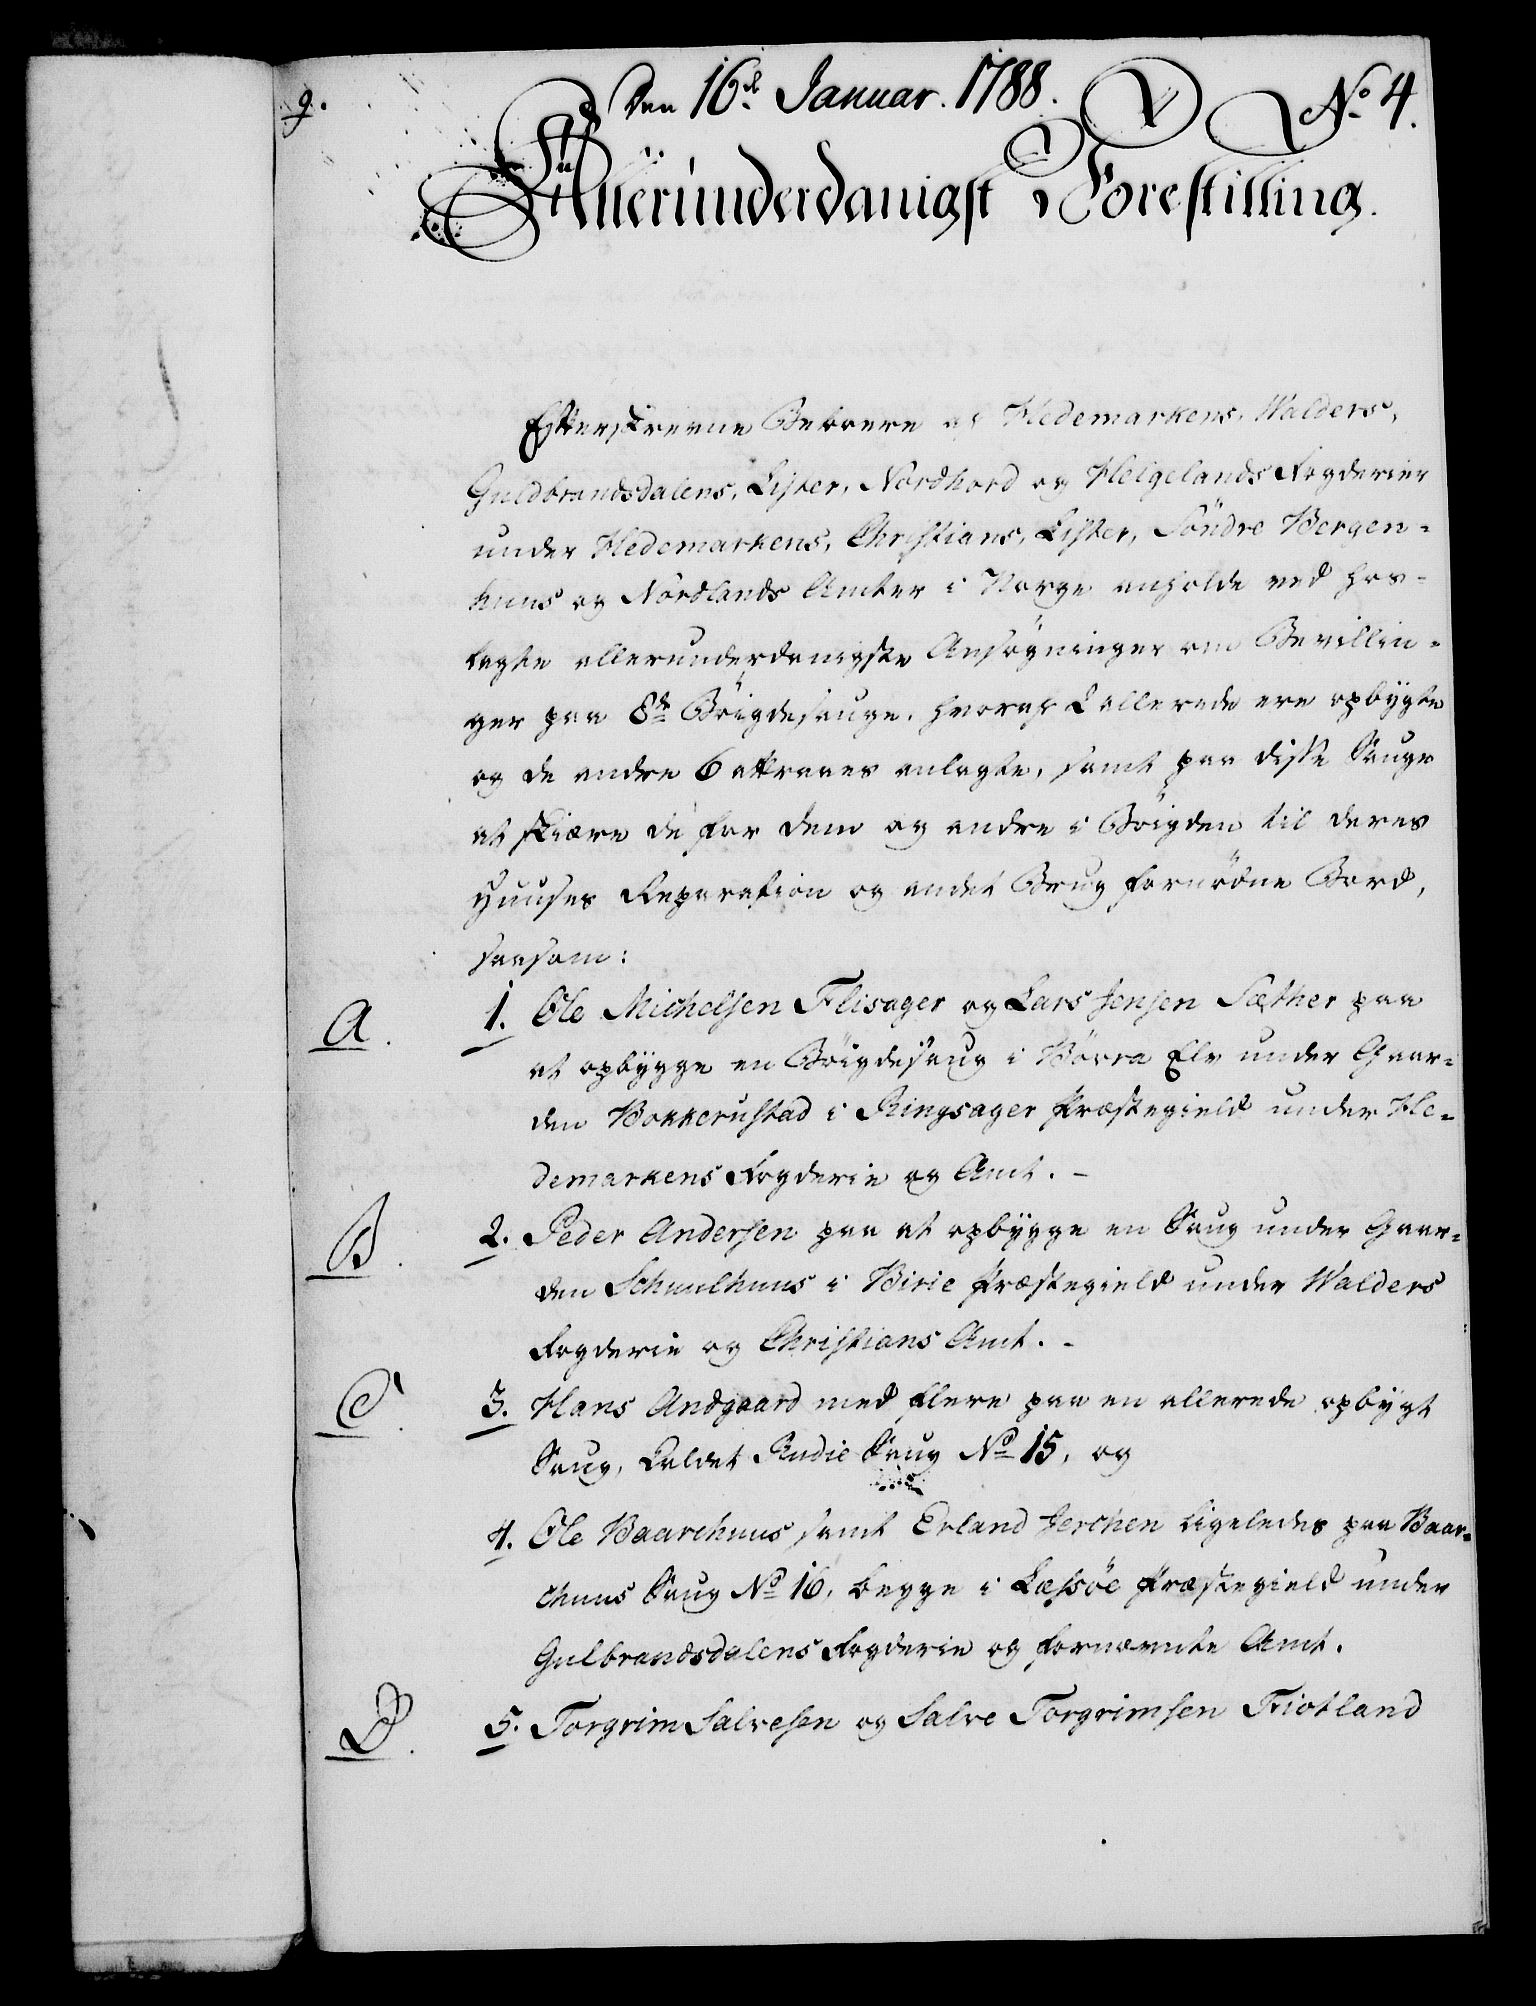 9.
Den 16.de Januar. 1788. No. 4.
Allerunderdanigst Forestilling.
Efterskrevne Beboere af Hedemarkens, Walders,
Guldbrandsdalens, Lister, Nordhord og Helgelands Fogderier
under Hedemarkens, Christians, Lister, Söndre Bergen-
huus og Nordlands Amter i Norge anholde ved hos-
lagte allerunderdanigste Ansøgninger om Bevillin-
ger paa 8de Böigdesauge, hvoraf 2 allerede ere opbygte
og de andre 6 attraaes anlagte, samt paa disse Sauge
at skiære de for dem og andre i Böigden til deres
Huuses Reparation og andet Brug fornödne Bord,
saasom:
A. 1. Ole Michelsen Flisager og Lars Jensen Sæther paa
at opbygge en Böigdesaug i Börra Elv under Gaar-
den Bokkerustad i Ringsager Præstegield under He-
demarkens Fogderie og Amt. -
B. 2. Peder Andersen paa at opbygge en Saug under Gaar-
den Schuulhuus i Birie Præstegield under Walders
Fogderie og Christians Amt. -
C. 3. Hans Andgaard med flere paa en allerede opbygt
Saug, kaldet Rudie Saug No 15, og
4. Ole Baarchuus samt Erland Jerchen ligeledes paa Baar-
chuus Saug No 16, begge i Læssöe Præstegield under
Gulbrandsdalens Fogderie og fornævnte Amt.
D. 5. Torgrim Salvesen og Salve Torgrimsen Fiotland